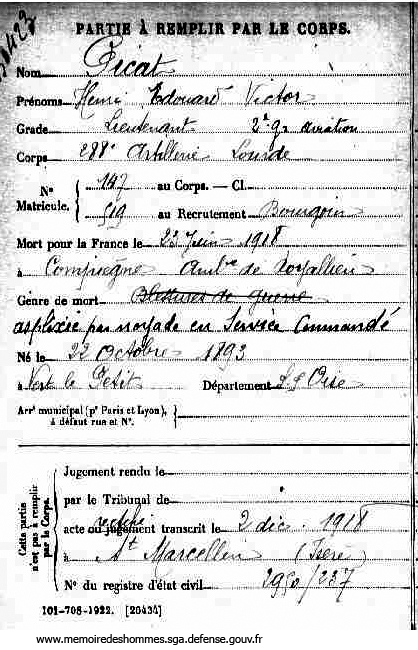 PARTIE À REMPLIR PAR LE CORPS.
Nom Picat
Prénoms Henri Edouard Victor
Grade Lieutenant 2e gr aviation
Corps 288e Artillerie Lourde
N° Matricule. { 147 au Corps. — Cl.
519 au Recrutement Bourgoin
Mort pour la France le 23 Juin 1918
à Compiegne Ambce de Royallieu
Genre de mort Blessures de guerre
asphixié par noyade en Service Commandé
Né le 22 Octobre 1893
à Vert le Petit Département S. & Oise
Arrt municipal (pr Paris et Lyon), }
à défaut rue et N°.
Cette partie n'est pas à remplir par le Corps. {
Jugement rendu le
par le Tribunal de
acte ou jugement transcrit le 2 déc. 1918
à St Marcellin (Isere)
N° du registre d'état civil 2950/237
101-708-1922. [20434]
www.memoiredeshommes.sga.defense.gouv.fr